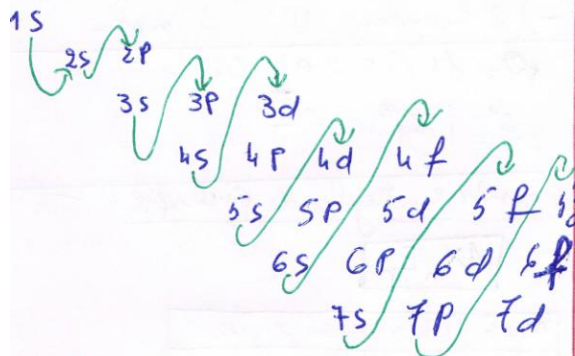 1S
2S 2P
3S 3P 3d
4S 4P 4d 4f
5S 5P 5d 5f
6S 6P 6d 6f
7S 7P 7d